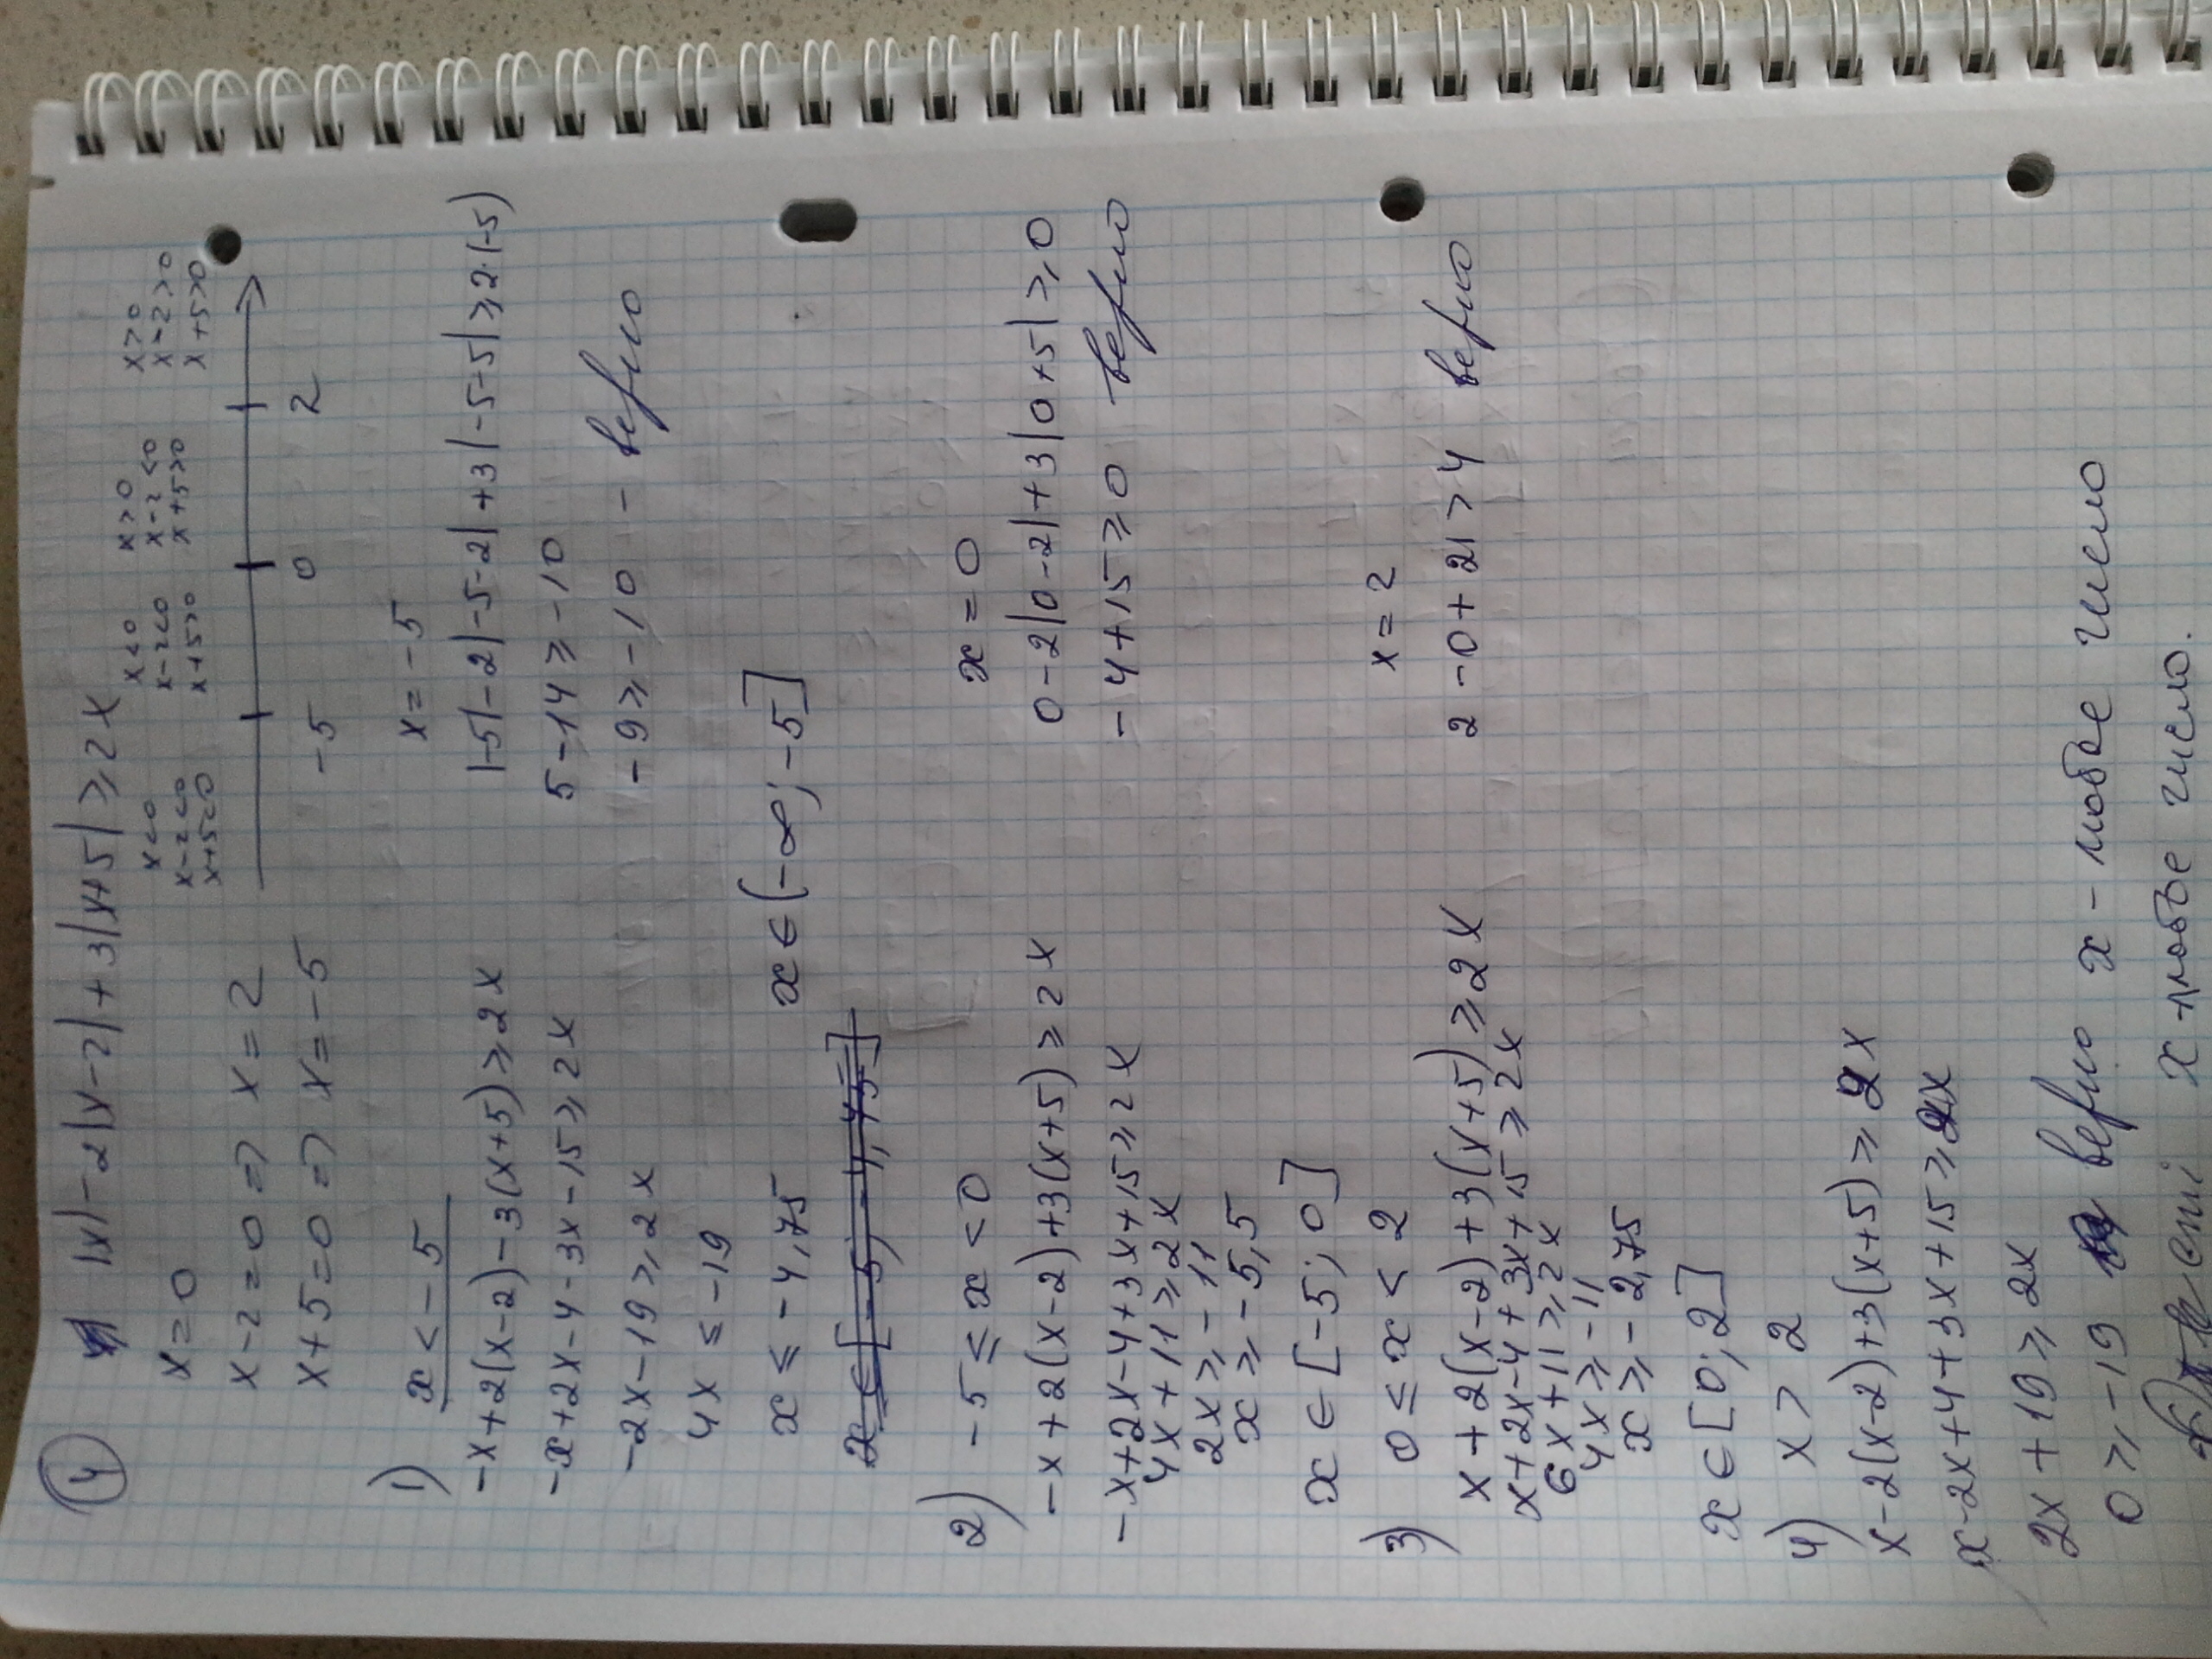 4
|x|-2|x-2|+3|x+5| ≥ 2x
x=0
x-2=0 => x=2
x+5=0 => x=-5
x<0
x-2<0
x+5<0
x<0
x-2<0
x+5>0
x>0
x-2<0
x+5>0
x>0
x-2>0
x+5>0
-5 0 2
1) x<-5
-x+2(x-2)-3(x+5) ≥ 2x
-x+2x-4-3x-15 ≥ 2x
-2x-19 ≥ 2x
4x ≤ -19
x ≤ -4,75
x=-5
|-5|-2|-5-2|+3|-5+5| ≥ 2·(-5)
5-14 ≥ -10
-9 ≥ -10 - верно
x∈(-∞; -5]
x∈[-5; -4,75]
2) -5 ≤ x < 0
-x+2(x-2)+3(x+5) ≥ 2x
-x+2x-4+3x+15 ≥ 2x
4x+11 ≥ 2x
2x ≥ -11
x ≥ -5,5
x∈[-5; 0]
x=0
0-2|0-2|+3|0+5| ≥ 0
-4+15 ≥ 0 верно
3) 0 ≤ x < 2
x+2(x-2)+3(x+5) ≥ 2x
x+2x-4+3x+15 ≥ 2x
6x+11 ≥ 2x
4x ≥ -11
x ≥ -2,75
x∈[0; 2]
x=2
2-0+21 > 4 верно
4) x > 2
x-2(x-2)+3(x+5) ≥ 2x
x-2x+4+3x+15 ≥ 2x
2x+19 ≥ 2x
0 ≥ -19 верно x - любое число
x - любое число.